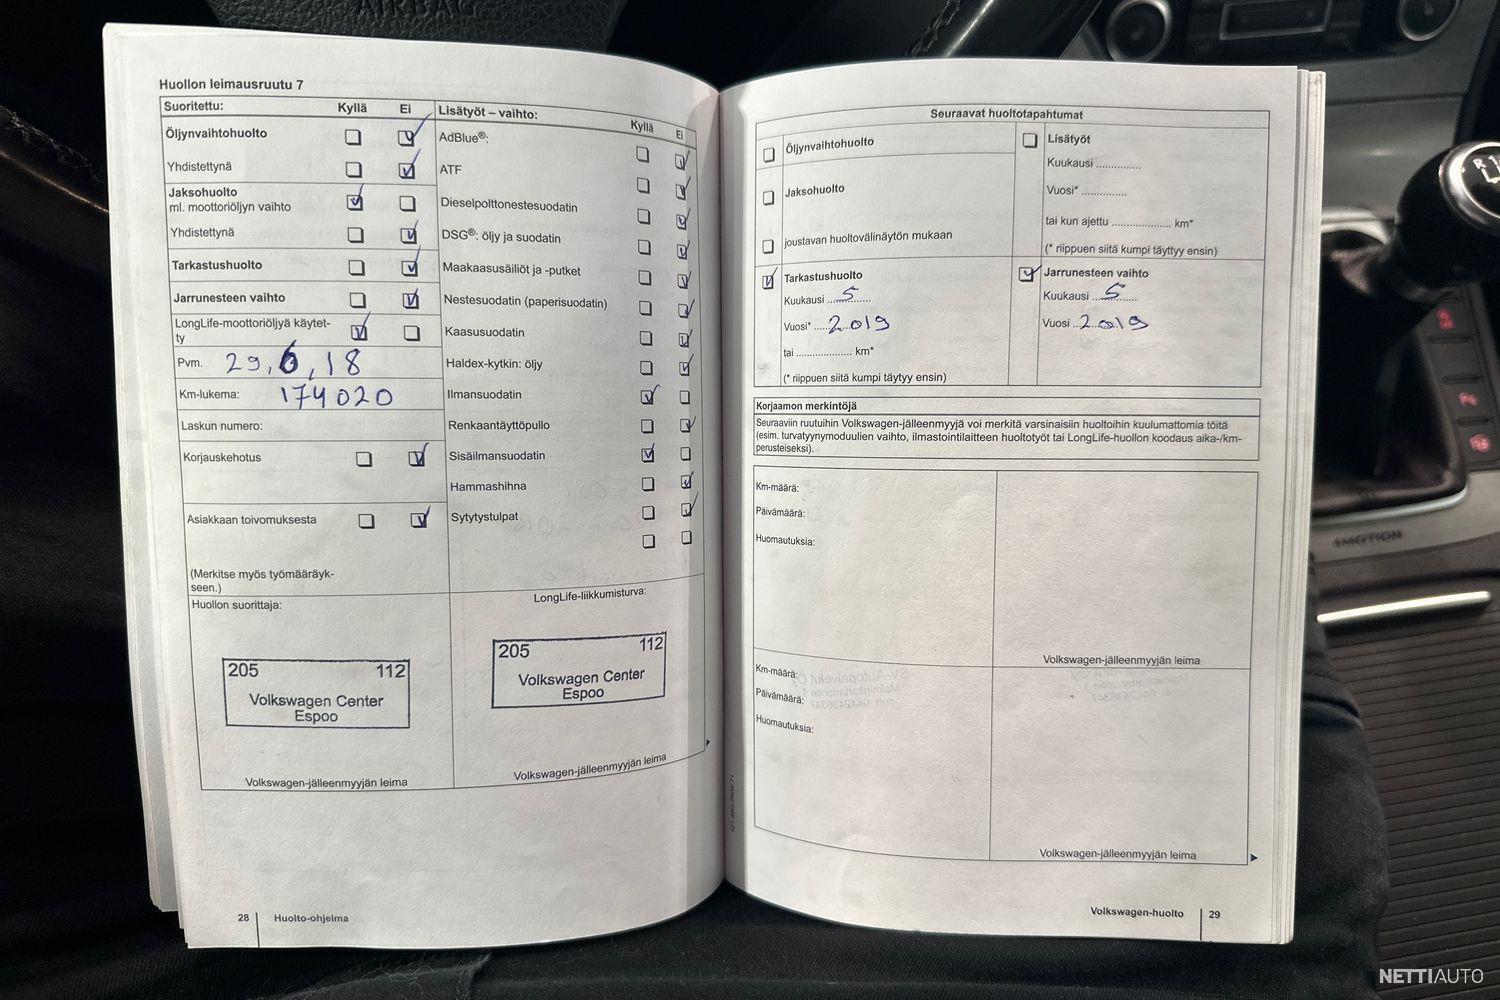 AIRBAG
Huollon leimausruutu 7
Suoritettu: Kyllä Ei
Öljynvaihtohuolto
Yhdistettynä
Jaksohuolto
ml. moottoriöljyn vaihto
Yhdistettynä
Tarkastushuolto
Jarrunesteen vaihto
LongLife-moottoriöljyä käytet-
ty
Pvm. 29,6,18
Km-lukema: 174020
Laskun numero:
Korjauskehotus
Asiakkaan toivomuksesta
(Merkitse myös työmääräyk-
seen.)
Huollon suorittaja:
205 112
Volkswagen Center
Espoo
Volkswagen-jälleenmyyjän leima
Lisätyöt – vaihto: Kyllä Ei
AdBlue®:
ATF
Dieselpolttonestesuodatin
DSG®: öljy ja suodatin
Maakaasusäiliöt ja -putket
Nestesuodatin (paperisuodatin)
Kaasusuodatin
Haldex-kytkin: öljy
Ilmansuodatin
Renkaantäyttöpullo
Sisäilmansuodatin
Hammashihna
Sytytystulpat
LongLife-liikkumisturva:
205 112
Volkswagen Center
Espoo
Volkswagen-jälleenmyyjän leima
28 Huolto-ohjelma
Seuraavat huoltotapahtumat
Öljynvaihtohuolto
Jaksohuolto
joustavan huoltovälinäytön mukaan
Lisätyöt
Kuukausi ..............
Vuosi* ..............
tai kun ajettu .................... km*
(* riippuen siitä kumpi täyttyy ensin)
Tarkastushuolto
Kuukausi 5
Vuosi* 2019
tai ................... km*
(* riippuen siitä kumpi täytyy ensin)
Jarrunesteen vaihto
Kuukausi 5
Vuosi 2019
Korjaamon merkintöjä
Seuraaviin ruutuihin Volkswagen-jälleenmyyjä voi merkitä varsinaisiin huoltoihin kuulumattomia töitä
(esim. turvatyynymoduulien vaihto, ilmastointilaitteen huoltotyöt tai LongLife-huollon koodaus aika-/km-
perusteiseksi).
Km-määrä:
Päivämäärä:
Huomautuksia:
Volkswagen-jälleenmyyjän leima
Km-määrä:
Päivämäärä:
Huomautuksia:
Volkswagen-jälleenmyyjän leima
Volkswagen-huolto 29
4MOTION
R 1
NETTIAUTO